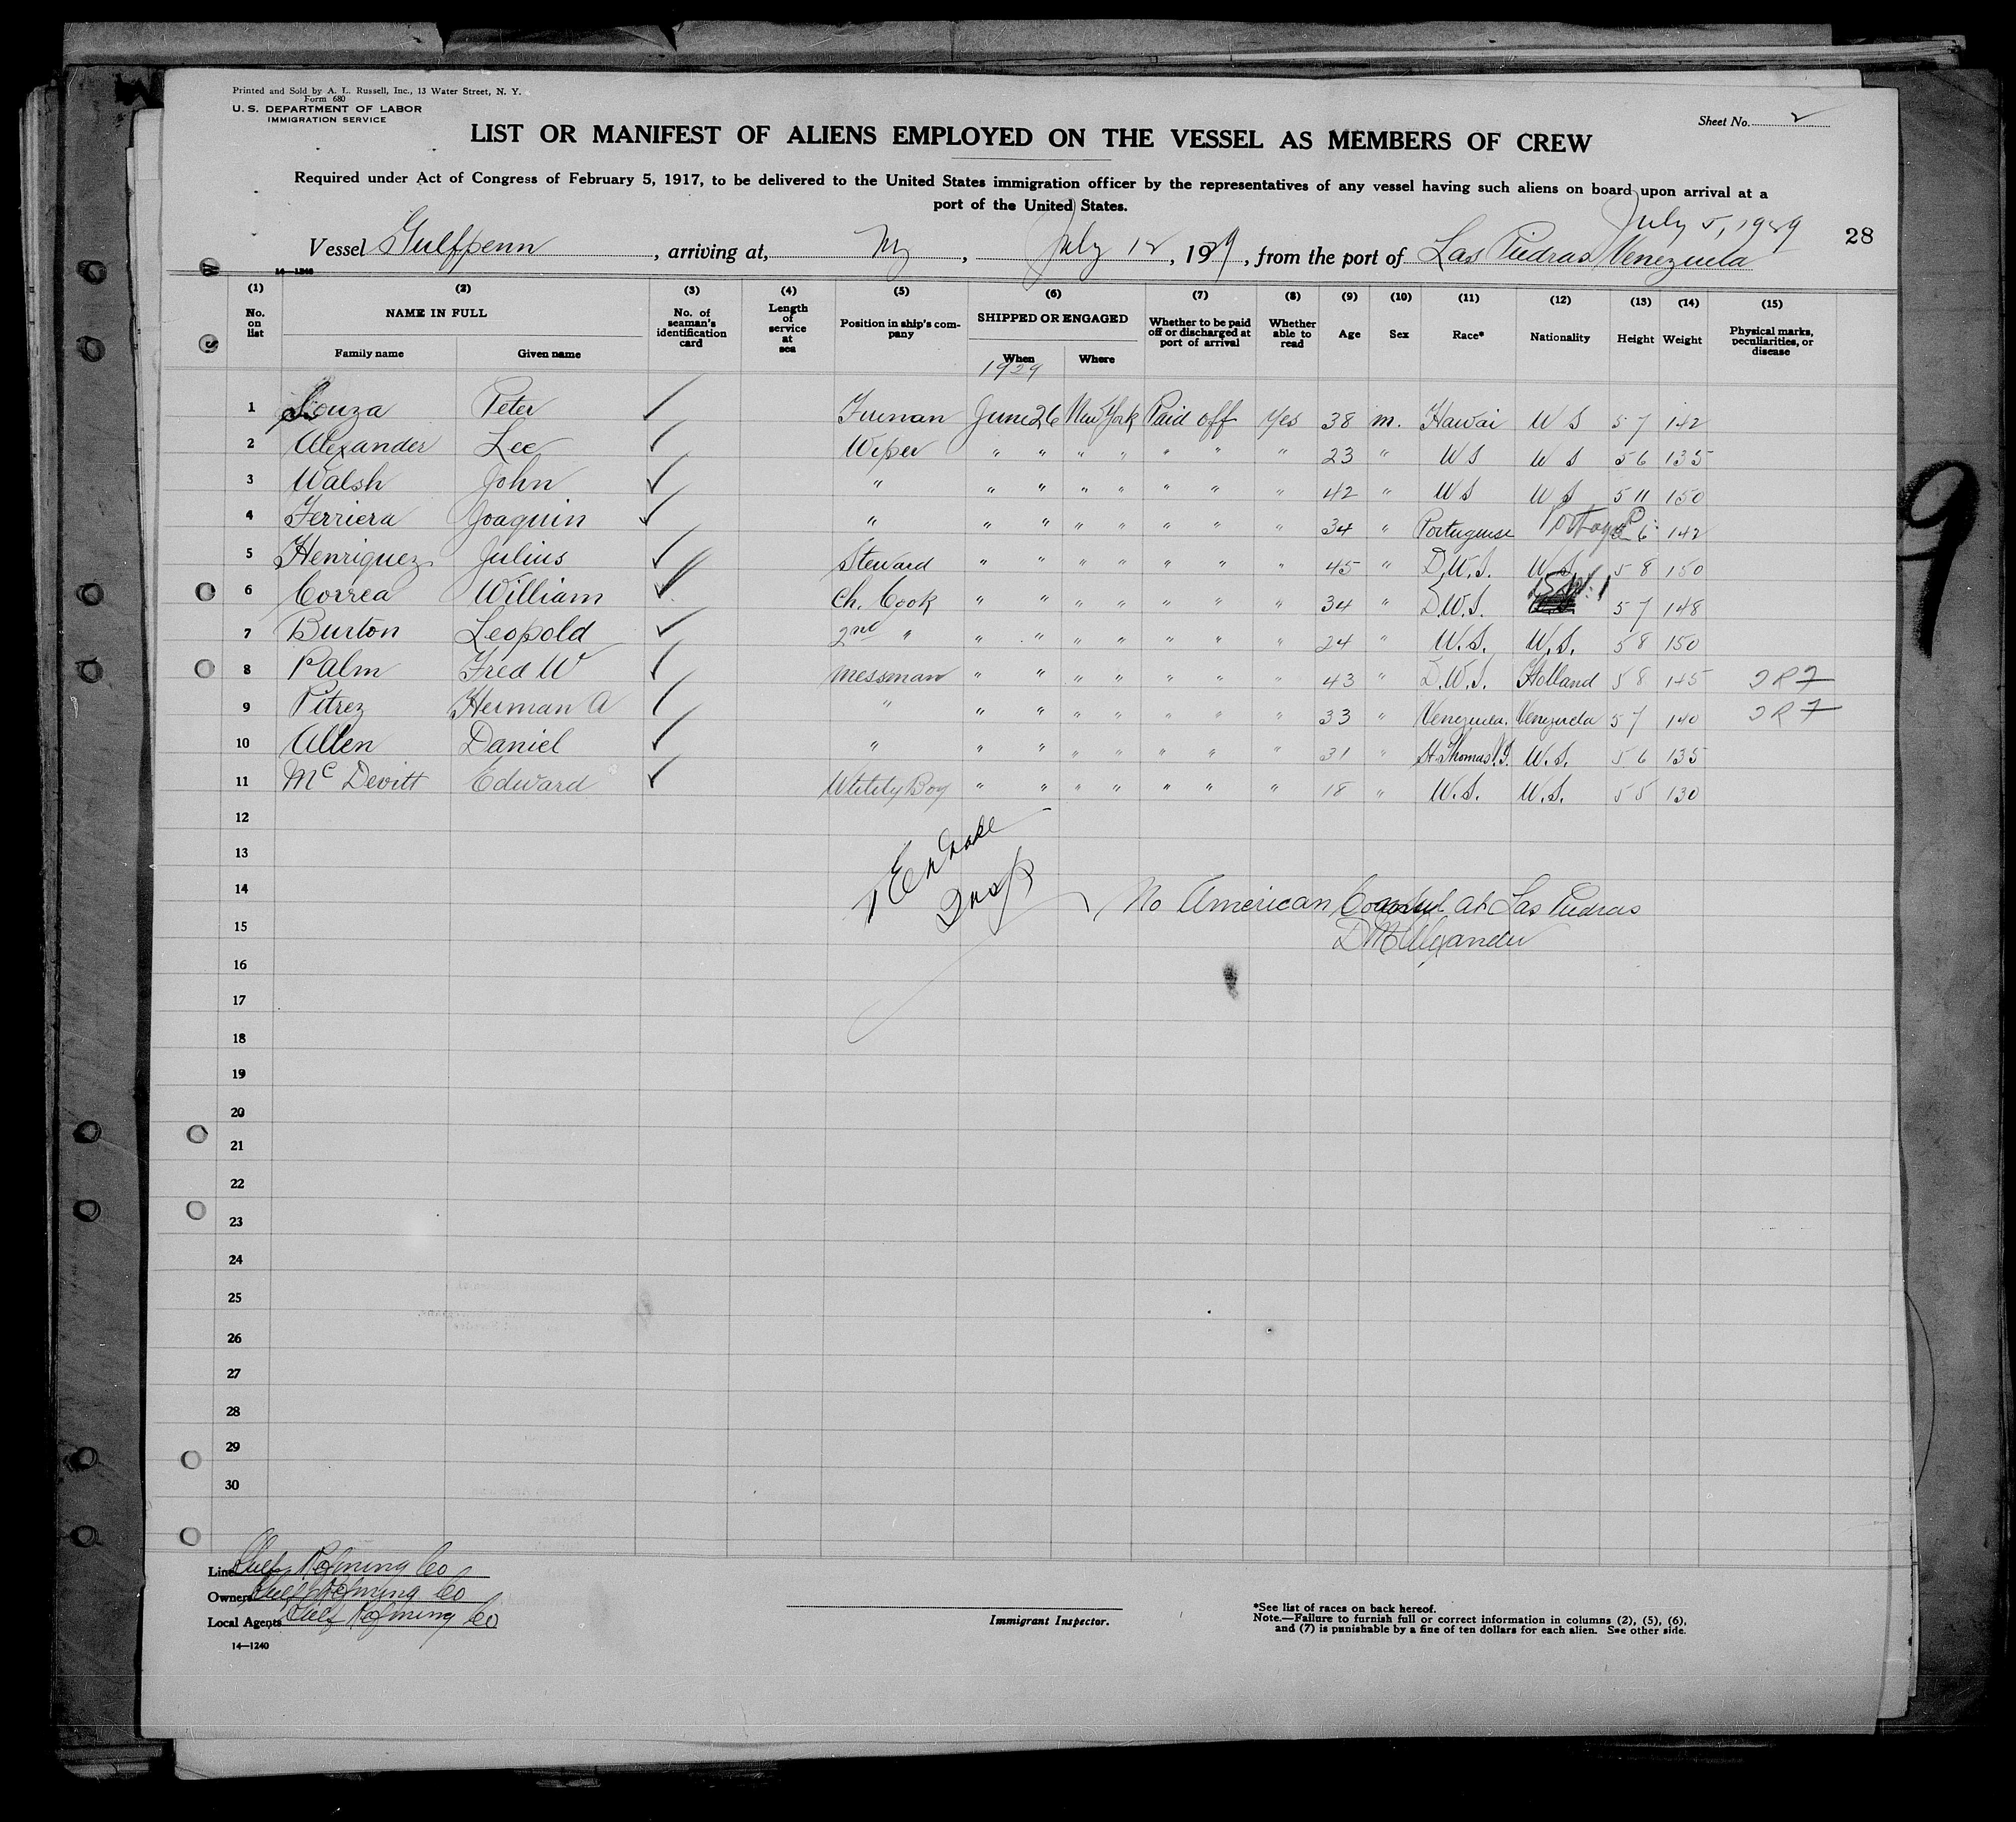 Printed and Sold by A. L. Russell, Inc., 13 Water Street, N. Y.
Form 680
U. S. DEPARTMENT OF LABOR
IMMIGRATION SERVICE
Sheet No. 2
LIST OR MANIFEST OF ALIENS EMPLOYED ON THE VESSEL AS MEMBERS OF CREW
Required under Act of Congress of February 5, 1917, to be delivered to the United States immigration officer by the representatives of any vessel having such aliens on board upon arrival at a
port of the United States.
July 5, 1929
28
Vessel Gulfpenn, arriving at, Ny, July 12, 1929, from the port of Las Piedras Venezuela
14—1240
(1) (2) (3) (4) (5) (6) (7) (8) (9) (10) (11) (12) (13) (14) (15)
No. on list NAME IN FULL No. of seaman's identification card Length of service at sea Position in ship's company SHIPPED OR ENGAGED Whether to be paid off or discharged at port of arrival Whether able to read Age Sex Race* Nationality Height Weight Physical marks, peculiarities, or disease
Family name Given name When Where
1929
1 Souza Peter ✓ Fireman June 26 New York Paid off Yes 38 m. Hawai U S 5 7 142
2 Alexander Lee ✓ Wiper " " " " " " " 23 " U S U S 5 6 135
3 Walsh John ✓ " " " " " " " " 42 " U S U S 5 11 150
4 Ferriera Joaquin ✓ " " " " " " " " 34 " Portuguese Portugal 5 6 142
5 Henriquez Julius ✓ Steward " " " " " " " 45 " D.W.I. U.S. 5 8 150
6 Correa William ✓ Ch. Cook " " " " " " " 34 " D.W.I. 5 7 148
7 Burton Leopold ✓ 2nd " " " " " " " " 24 " U.S. U.S. 5 8 150
8 Palm Fred W ✓ Messman " " " " " " " 43 " D.W.I. Holland 5 8 145
9 Pitrez Herman A ✓ " " " " " " " " 33 " Venezuela. Venezuela 5 7 140
10 Allen Daniel ✓ " " " " " " " " 31 " St. Thomas V.I. U.S. 5 6 135
11 McDevitt Edward ✓ Utility Boy " " " " " " " 18 " U.S. U.S. 5 5 130
12
13
14 Insp No American Consul at Las Piedras
15 D M Alexander
16
17
18
19
20
21
22
23
24
25
26
27
28
29
30
9
Line Gulf Refining Co
Owners Gulf Refining Co
Local Agents Gulf Refining Co
14—1240
Immigrant Inspector.
*See list of races on back hereof.
Note.—Failure to furnish full or correct information in columns (2), (5), (6),
and (7) is punishable by a fine of ten dollars for each alien. See other side.